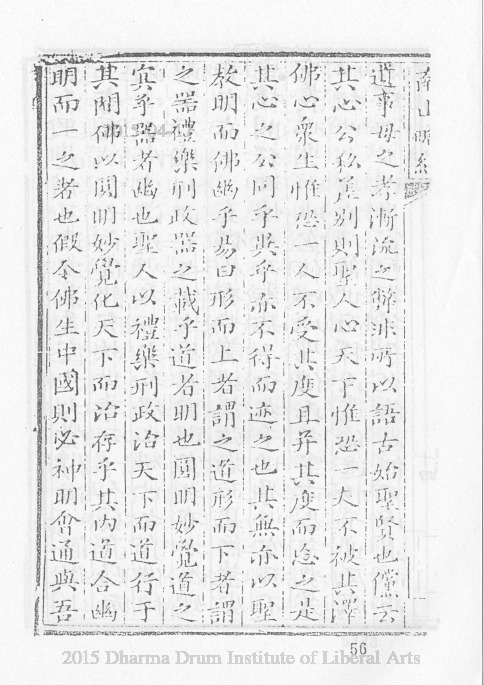 道事毋之孝漸流之弊非所以語古始聖賢也儻云
其心公私差別則聖人心天下惟恐一夫不被其澤
佛心衆生惟恐一人不受其度且并其度而忘之是
其心之公同乎異乎亦不得而迹之也其無亦以聖
教明而佛幽乎易曰形而上者謂之道形而下者謂
之器禮樂刑政器之載乎道者明也圓明妙覺道之
寘乎器者幽也聖人以禮樂刑政治天下而道行于
其間佛以圓明妙覺化天下而治存乎其内道合幽
明而一之者也假令佛生中國則必神明會通與吾
56
2015 Dharma Drum Institute of Liberal Arts